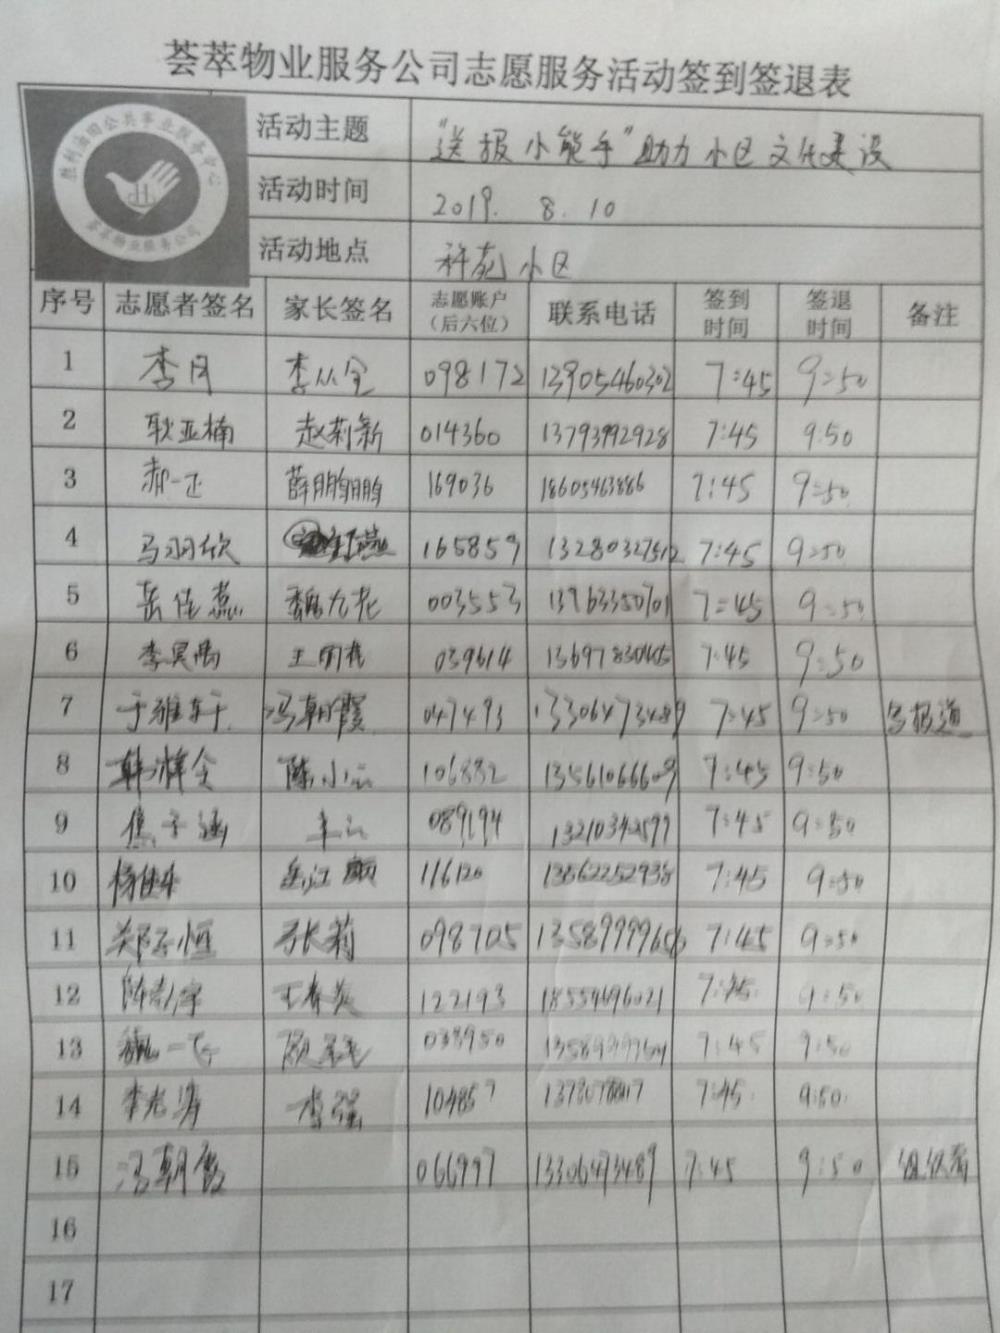 荟萃物业服务公司志愿服务活动签到签退表
胜利油田公共事业服务中心
荟萃物业服务公司
活动主题 "送报小能手"助力小区文化建设
活动时间 2019. 8. 10
活动地点 科苑小区
序号 志愿者签名 家长签名 志愿账户（后六位） 联系电话 签到时间 签退时间 备注
1 李月 李从全 098172 13905460302 7:45 9:50
2 耿亚楠 赵莉新 014360 13793992928 7:45 9:50
3 郝一正 薛鹏鹏 169036 18605463886 7:45 9:50
4 马羽欣 165859 13280327512 7:45 9:50
5 岳佳蕊 魏九花 003553 13963350701 7:45 9:50
6 李昊禹 王丽花 039614 7:45 9:50
7 于雅轩 冯朝霞 047493 13306473489 7:45 9:50 写报道
8 韩泽全 陈小云 106882 13561066609 7:45 9:50
9 焦子涵 089194 13210342599 7:45 9:50
10 116120 13562252938 7:45 9:50
11 郑子恒 张莉 098705 7:45 9:50
12 陈彭宇 王春英 122193 18554696021 7:45 9:50
13 038950 7:45 9:50
14 李老涛 李强 104857 7:45 9:50
15 冯朝霞 066997 13306473489 7:45 9:50 组织者
16
17